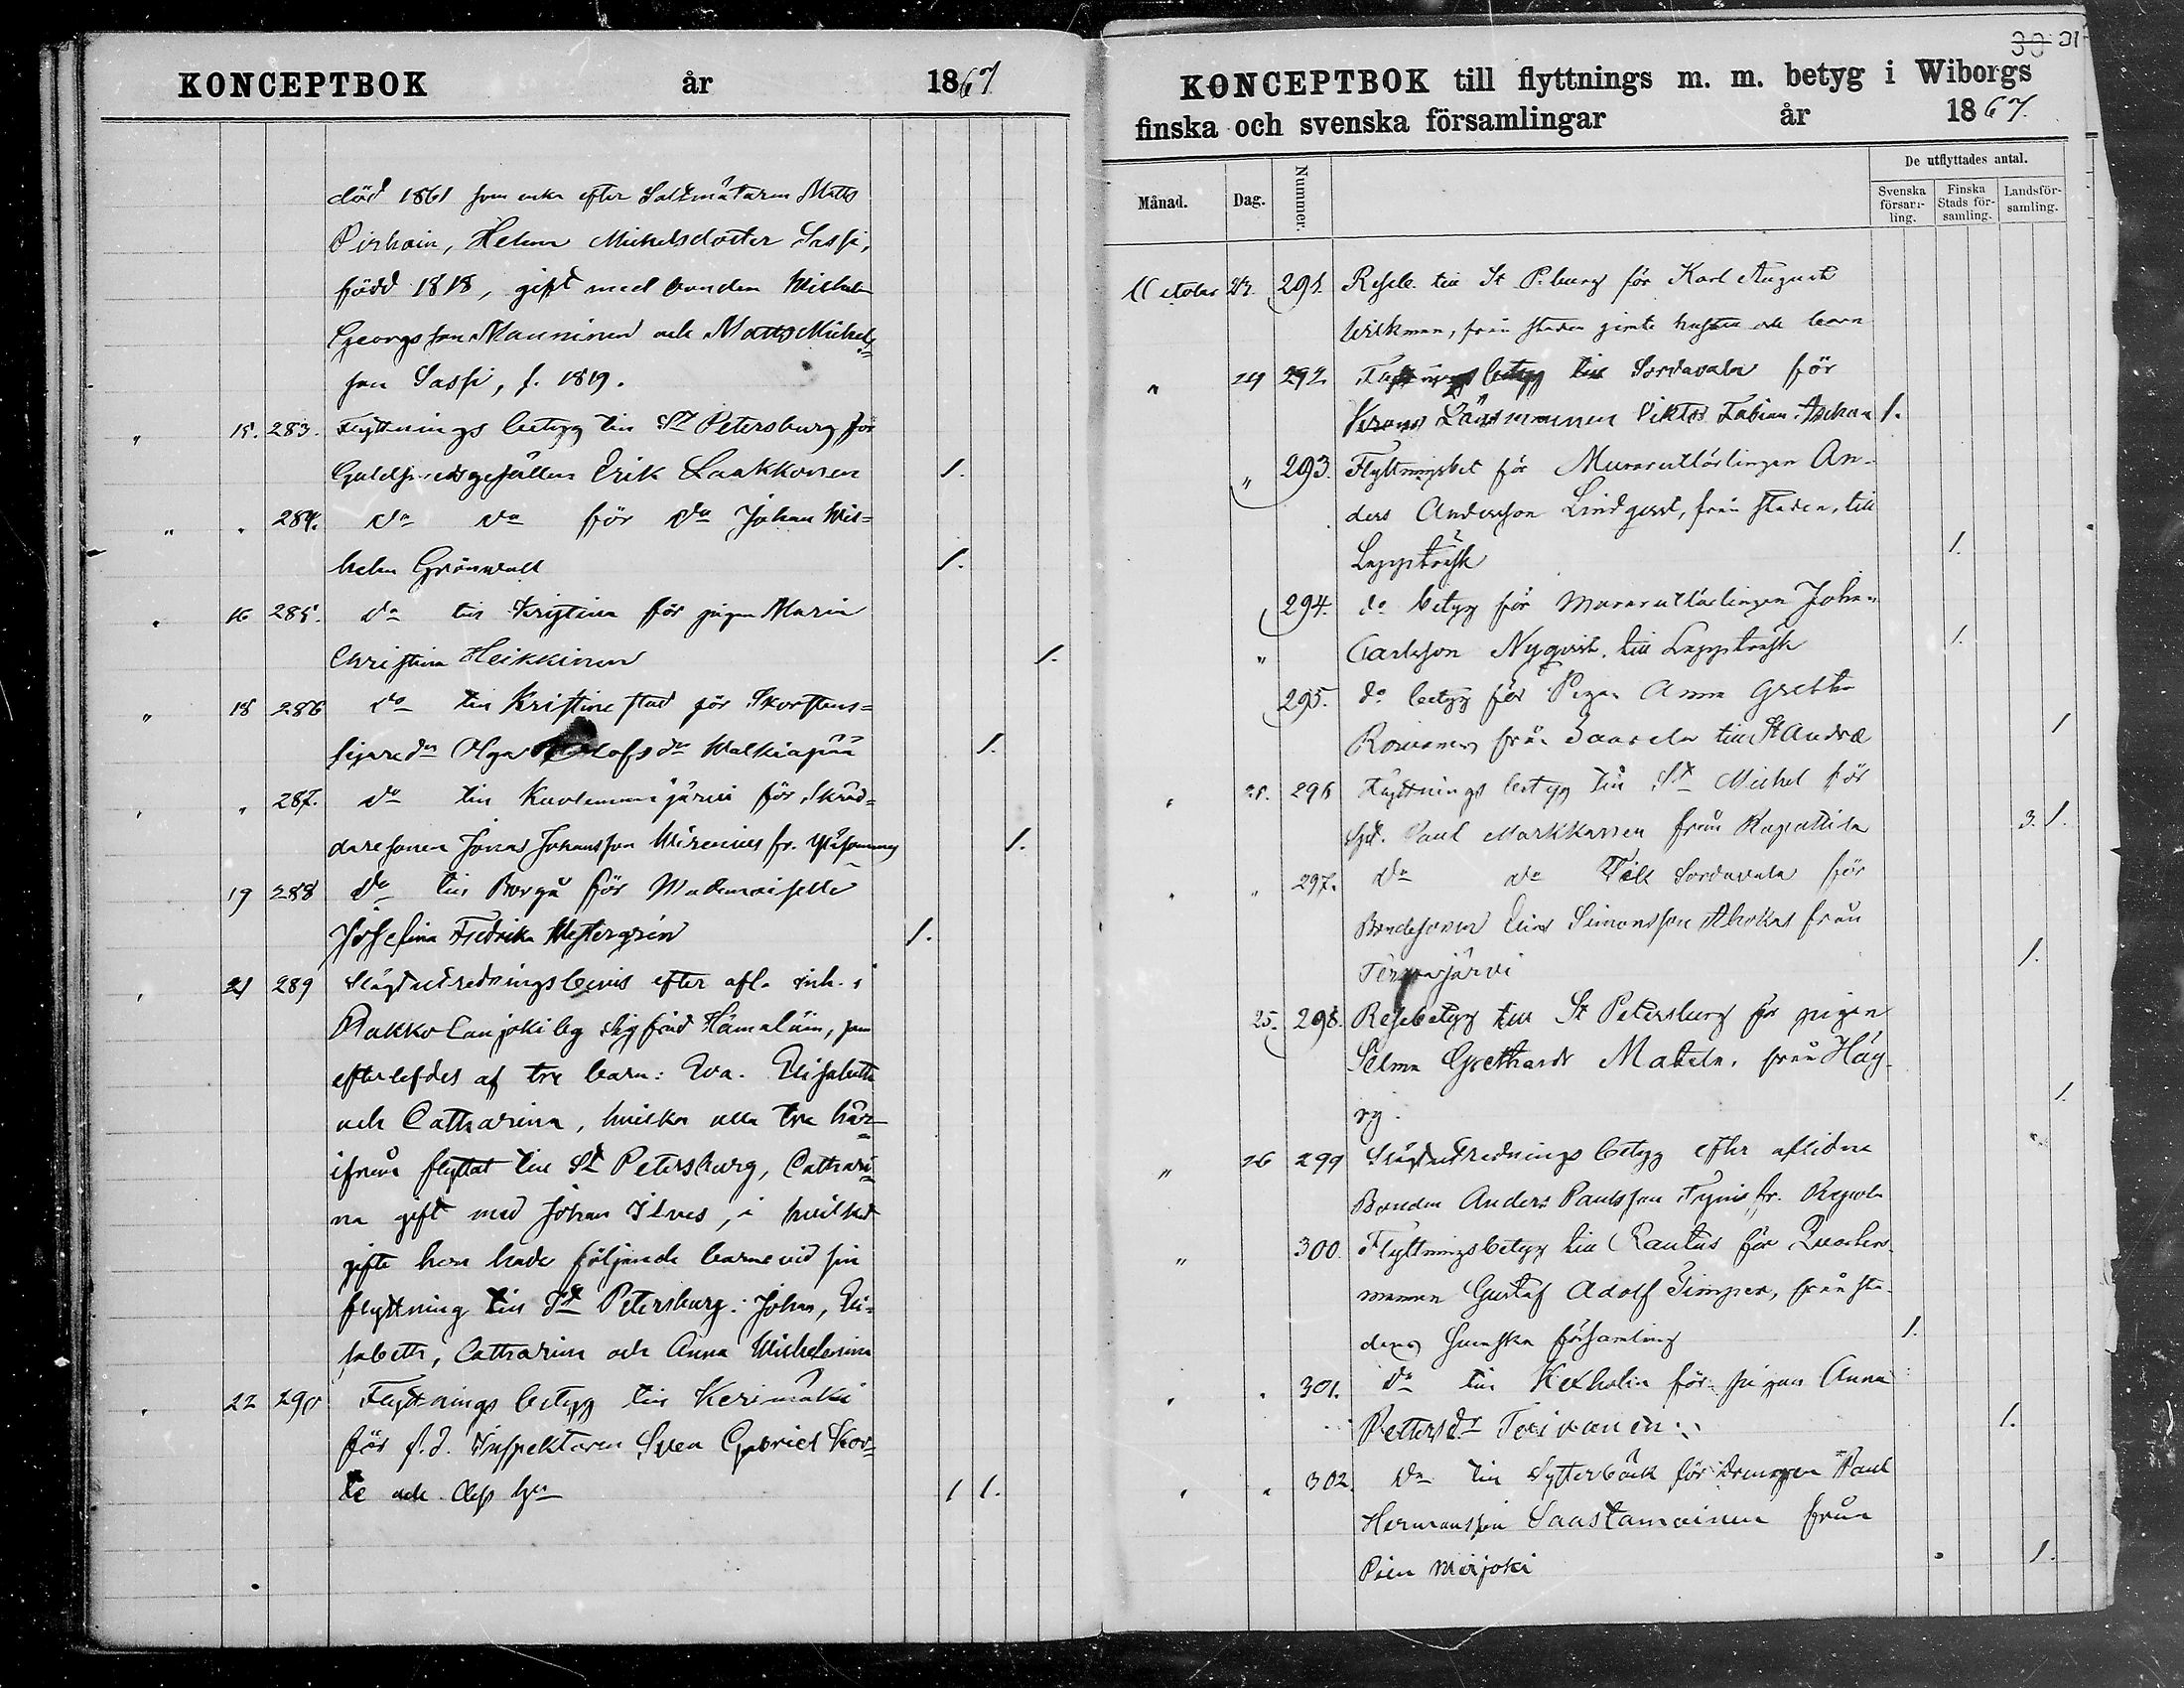 KONCEPTBOK år 1867
död 1861 som enka efter Saltmätaren Matts
Pirhoin, Helena Michelsdotter Sassi,
född 1818, gift med bonden Wilhelm
Georgsson Manninen och Matts Michels=
son Sassi, f. 1819.
" 15. 283. Flyttnings betyg till St Petersburg för
Guldsmedsgesällen Erik Laakkonen 1.
" " 284. do do för do Johan Wil=
helm Grönwall 1.
" 16 285. do till Kristina för pigan Maria
Christina Heikkinen 1.
" 18 286 do till Kristinestad för Skorstens=
fejare Olga 1.
" " 287. do till Kuolemajärvi för Skräd=
daresonen Jonas Johansson Wirenius fr. 1.
19 288 do till Borgå för Mademoiselle
Josefina Fredrika Westergrén 1.
" 21 289 Slägtutredningsbevis efter afl. inh. i
Rakkolanjoki by Sigfrid Hämeläin, som
efterlefdes af tre barn: Eva. Elisabeth
och Catharina, hvilka alla tre här=
ifrån flyttat till St Petersburg, Cathari=
na gift med Johan Ilves, i hvilket
gifte hon hade följande barn vid sin
flyttning till St Petersburg: Johan, Eli=
sabeth, Catharina och Anna Wilhelmina
" 22 290 Flyttnings betyg till Kerimäki
för f.d. Inspektoren Sven Gabriel
och 1 1.
30 31
KONCEPTBOK till flyttnings m. m. betyg i Wiborgs
finska och svenska församlingar år 1867.
Månad. Dag. Nummer. De utflyttades antal.
Svenska församling. Finska Stads församling. Landsförsamling.
October 291. Reseb. till St P.burg för Karl August
Wilkman, från staden jemte hustru och barn
" 24 292. Flyttningsbetyg till Sordavala för
Krono Länsmannen Viktor Fabian 1.
" 293. Flyttningsbet för Murarutlärlingen An-
ders Andersson Lindqvist, från staden, till
Lappträsk 1.
294. do betyg för Murarutlärlingen Johan
" Carlsson Nyqvist, till Lappträsk 1.
295. do betyg för Pigan Anna Gretha
från Saarela till St Andræ 1
" 296 Flyttnings betyg till St Michel för
Paul Markkanen från Rapattila 3. 1.
" " 297. do do till Sordavala för
Bondesonen Elias Simonsson Ahokas från
järvi 1.
25. 298. Resebetyg till St Petersburg för pigan
Selma Matela, från Häy-
ry. 1.
" 26 299 Slägtutrednings betyg efter aflidne
Bonden Anders Paulsson fr. Repola
" 300. Flyttningsbetyg till Rautus för
mannen Gustaf Adolf Timper, från sta-
dens Svenska församling 1.
" " 301. do till Kexholm för pigan Anna
Pettersdr Toivanen 1.
" " 302. do till Systerbäck för drengen Paul
Hermansson Saastamoinen från
Pien Merijoki 1.